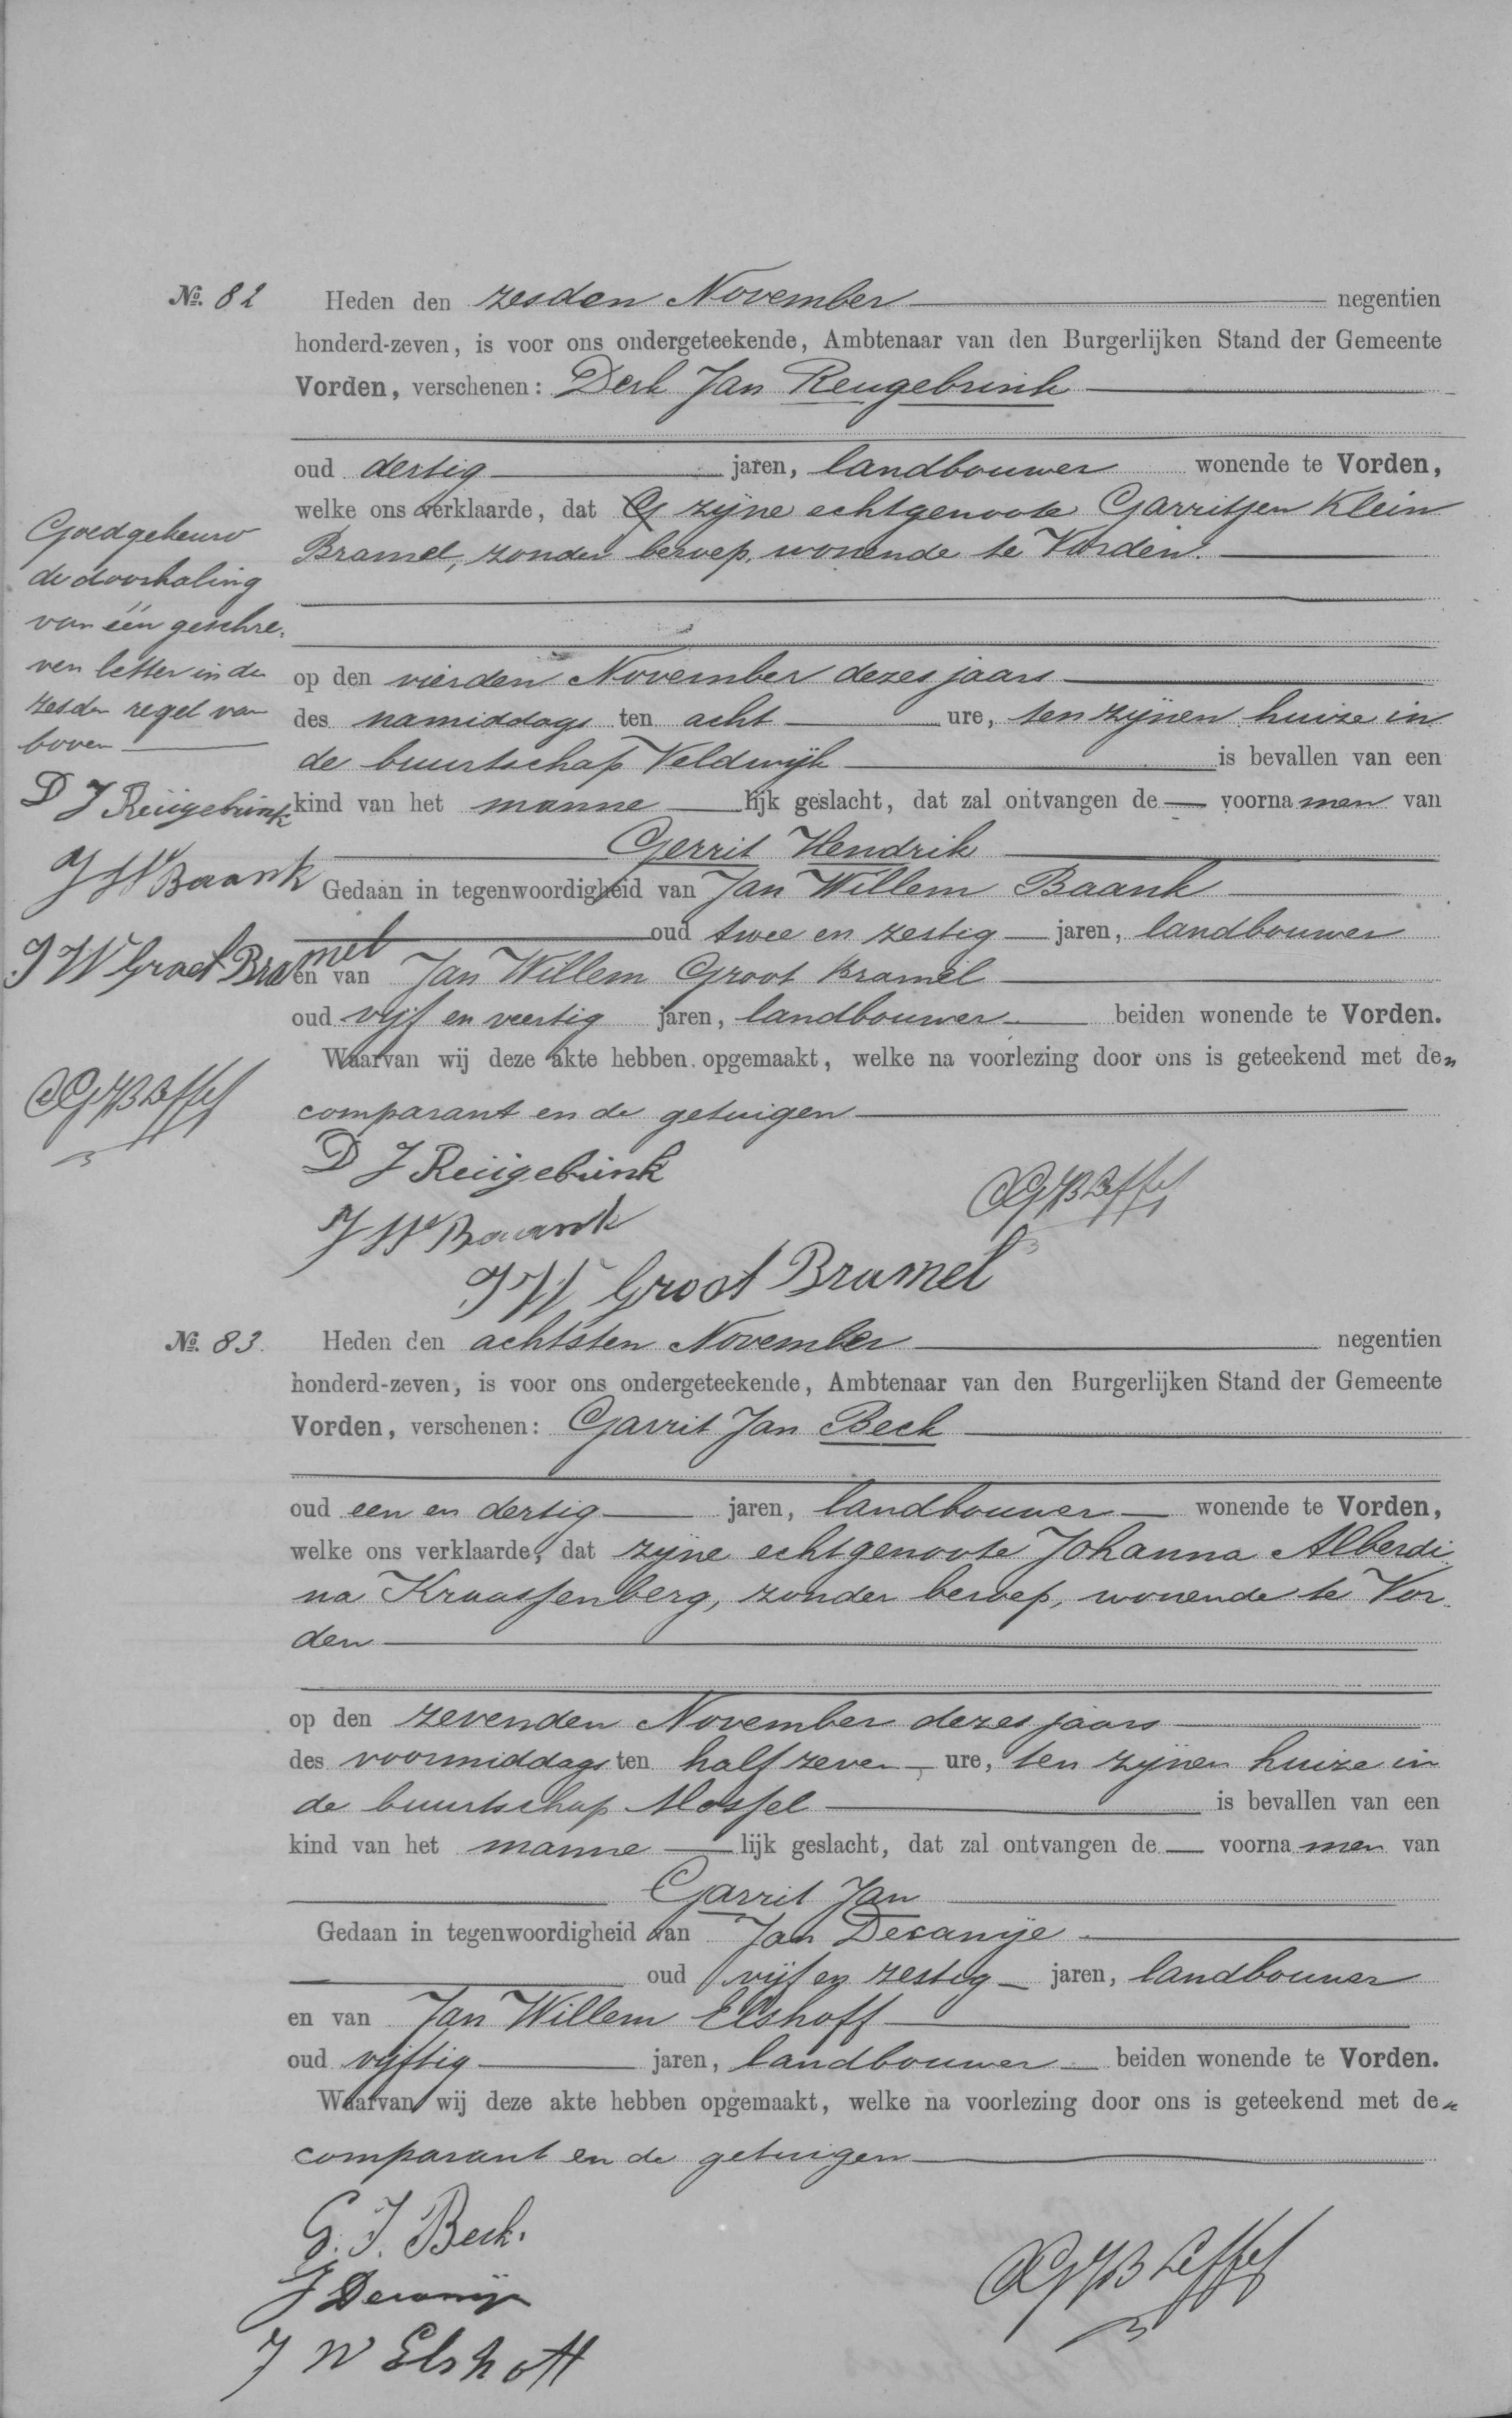 No. 82 Heden den zesden November negentien
honderd-zeven, is voor ons ondergeteekende, Ambtenaar van den Burgerlijken Stand der Gemeente
Vorden, verschenen: Derk Jan Reugebrink
oud dertig jaren, landbouwer wonende te Vorden,
welke ons verklaarde, dat G zijne echtgenoote Garritjen Klein
Bramel, zonder beroep, wonende te Vorden.
op den vierden November dezes jaars
des namiddags ten acht ure, ten zijnen huize in
de buurtschap Veldwijk is bevallen van een
kind van het manne lijk geslacht, dat zal ontvangen de voornamen van
Gerrit Hendrik
Gedaan in tegenwoordigheid van Jan Willem Baank
oud twee en zestig jaren, landbouwer
en van Jan Willem Groot Bramel
oud vijf en veertig jaren, landbouwer beiden wonende te Vorden.
Waarvan wij deze akte hebben opgemaakt, welke na voorlezing door ons is geteekend met den
comparant en de getuigen
Goedgekeurd
de doorhaling
van één geschre-
ven letter in de
zesden regel van
boven
D J Reugebrink
J W Baank
J W Groot Bramel
D J Reugebrink
J W Baank
J W Groot Bramel
No. 83. Heden den achtsten November negentien
honderd-zeven, is voor ons ondergeteekende, Ambtenaar van den Burgerlijken Stand der Gemeente
Vorden, verschenen: Garrit Jan Beek
oud een en dertig jaren, landbouwer wonende te Vorden,
welke ons verklaarde, dat zijne echtgenoote Johanna Alberdi
na Kraassenberg, zonder beroep, wonende te Vor-
den
op den zevenden November dezes jaars
des voormiddags ten half zeven ure, ten zijnen huize in
de buurtschap Mossel is bevallen van een
kind van het manne lijk geslacht, dat zal ontvangen de voornamen van
Garrit Jan
Gedaan in tegenwoordigheid van Jan Decanije
oud vijf en zestig jaren, landbouwer
en van Jan Willem Elshoff
oud vijftig jaren, landbouwer beiden wonende te Vorden.
Waarvan wij deze akte hebben opgemaakt, welke na voorlezing door ons is geteekend met den
comparant en de getuigen
G. J. Beek.
J Decanije
J W Elshoff